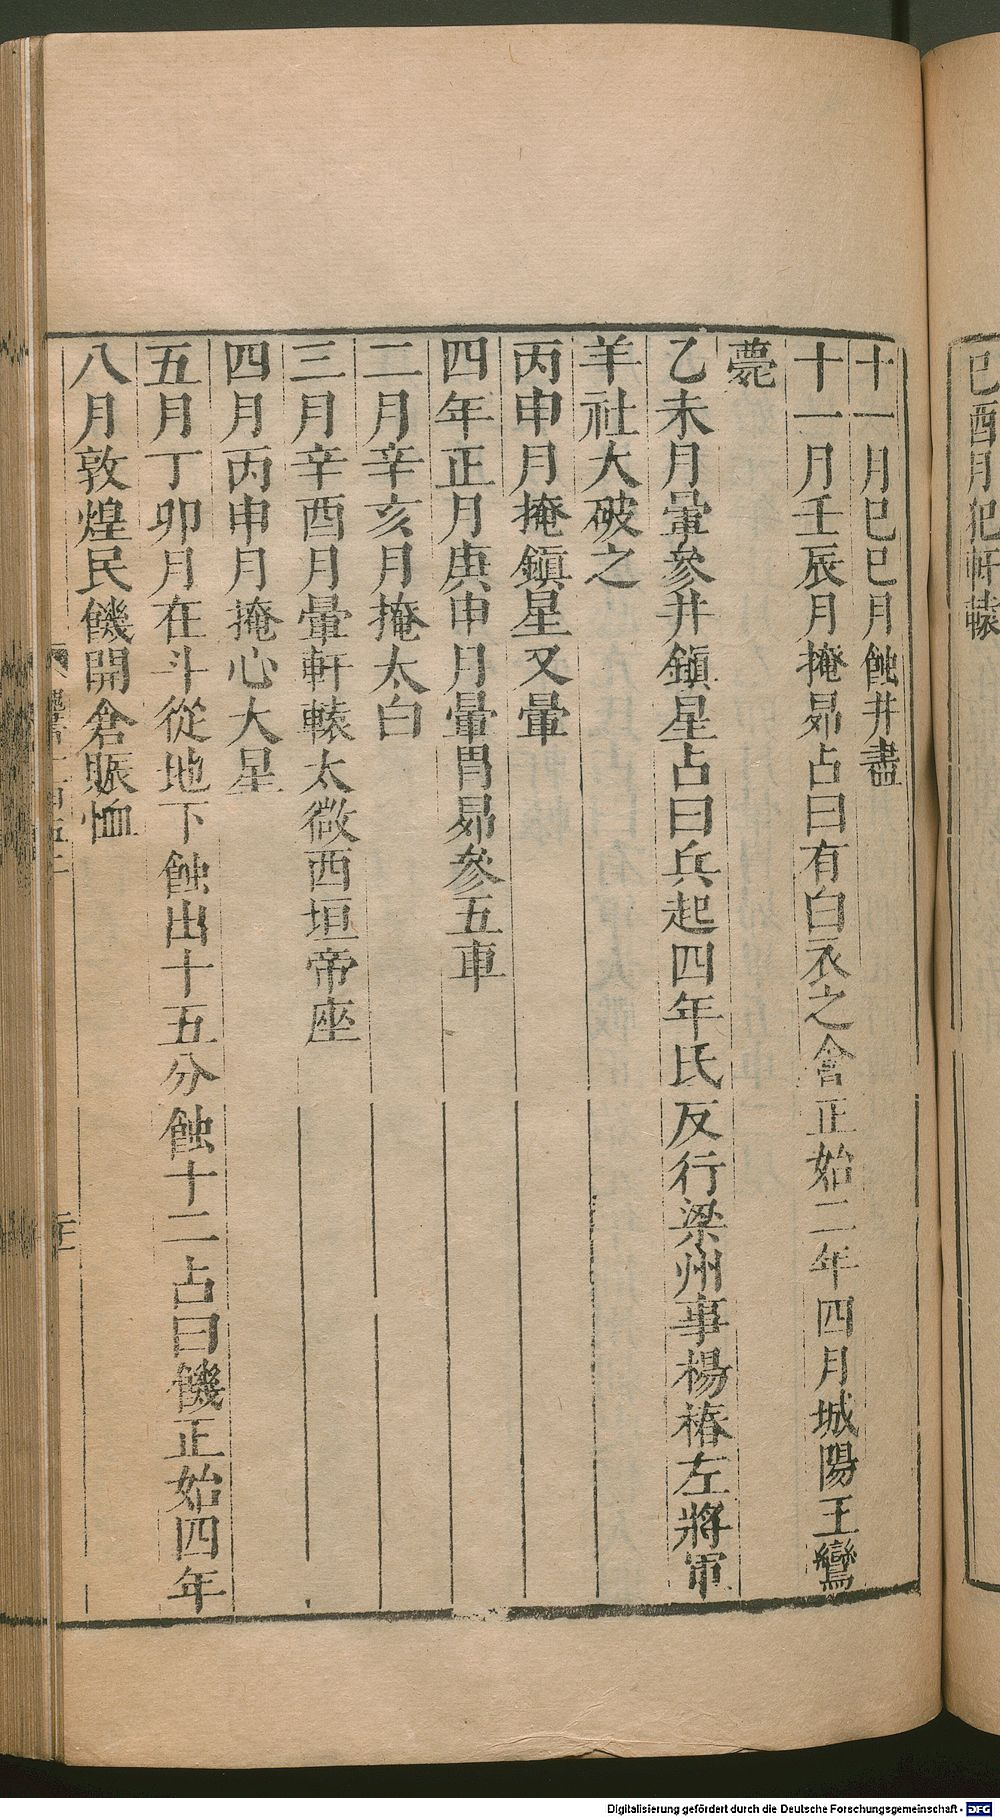 己酉月犯軒轅
十一月己巳月蝕井盡
十一月壬辰月掩昴占曰有白衣之會正始二年四月城陽王鸞
薨
乙未月暈參井鎮星占曰兵起四年氐反行梁州事楊椿左將軍
羊社大破之
丙申月掩鎮星又暈
四年正月庚申月暈胃昴參五車
二月辛亥月掩太白
三月辛酉月暈軒轅太微西垣帝座
四月丙申月掩心大星
五月丁卯月在斗從地下蝕出十五分蝕十二占曰饑正始四年
八月敦煌民饑開倉賑恤
Digitalisierung gefördert durch die Deutsche Forschungsgemeinschaft - DFG